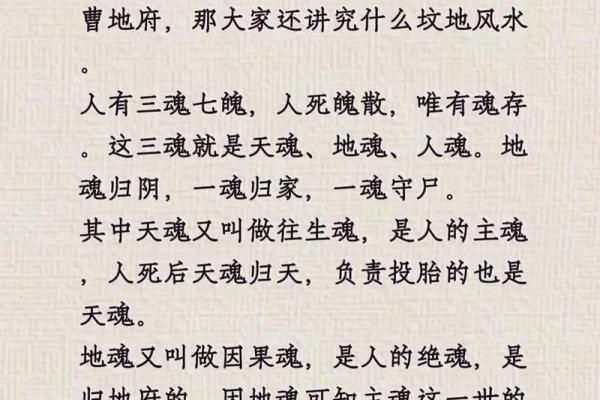 曹地府，那大家还讲究什么坟地风水
。
人有三魂七魄，人死魄散，唯有魂存
。这三魂就是天魂、地魂、人魂。地
魂归阴，一魂归家，一魂守尸。
其中天魂又叫做往生魂，是人的主魂
，人死后天魂归天，负责投胎的也是
天魂。
地魂又叫做因果魂，是人的绝魂，是
归地府的，因地魂可知主魂这一世的